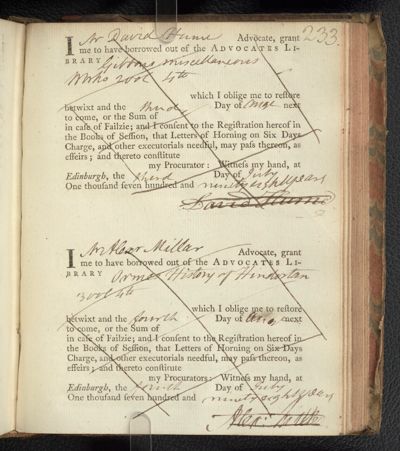 233.
I Mr David Hume Advocate, grant
me to have borrowed out of the ADVOCATES LI-
BRARY Gibbons miscellaneous
Works 2 vol 4to
which I oblige me to reſtore
betwixt and the third Day of next
to come, or the Sum of
in caſe of Failzie; and I conſent to the Regiſtration hereof in
the Books of Seſſion, that Letters of Horning on Six Days
Charge, and other executorials needful, may paſs thereon, as
effeirs; and thereto conſtitute
my Procurator: Witneſs my hand, at
Edinburgh, the third Day of July
One thouſand ſeven hundred and ninety eight years
David Hume
I Mr Alexr Millar Advocate, grant
me to have borrowed out of the ADVOCATES LI-
BRARY Ormes History of Hindostan
3 vol 4to
which I oblige me to reſtore
betwixt and the fourth Day of next
to come, or the Sum of
in caſe of Failzie; and I conſent to the Regiſtration hereof in
the Books of Seſſion, that Letters of Horning on Six Days
Charge, and other executorials needful, may paſs thereon, as
effeirs; and thereto conſtitute
my Procurators: Witneſs my hand, at
Edinburgh, the fourth Day of July
One thouſand ſeven hundred and ninety eight years